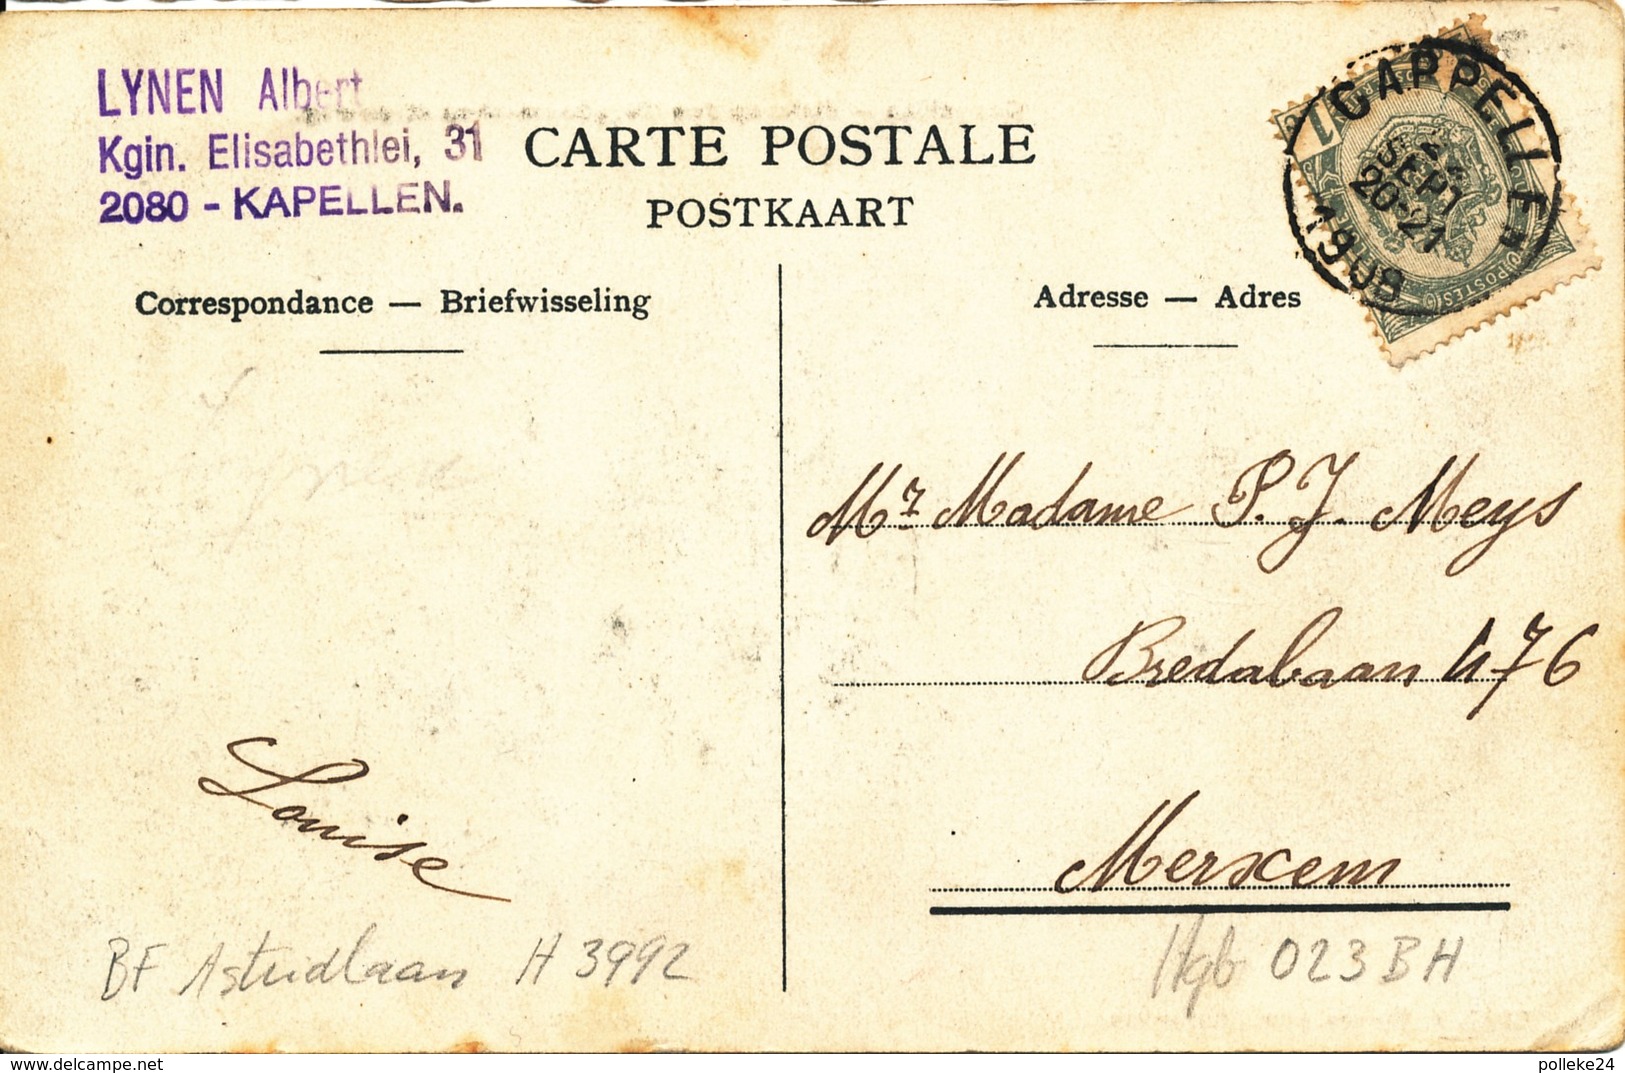 LYNEN Albert
Kgin. Elisabethlei, 31
2080 - KAPELLEN.
CARTE POSTALE
POSTKAART
CAPPELLEN
SEPT
20-21
1908
1
POSTES
Correspondance — Briefwisseling
Adresse — Adres
Mr Madame P. J. Meys
Bredabaan 476
Merxem
Louise
BF Astridlaan H 3992
Hgb 023BH
polleke24